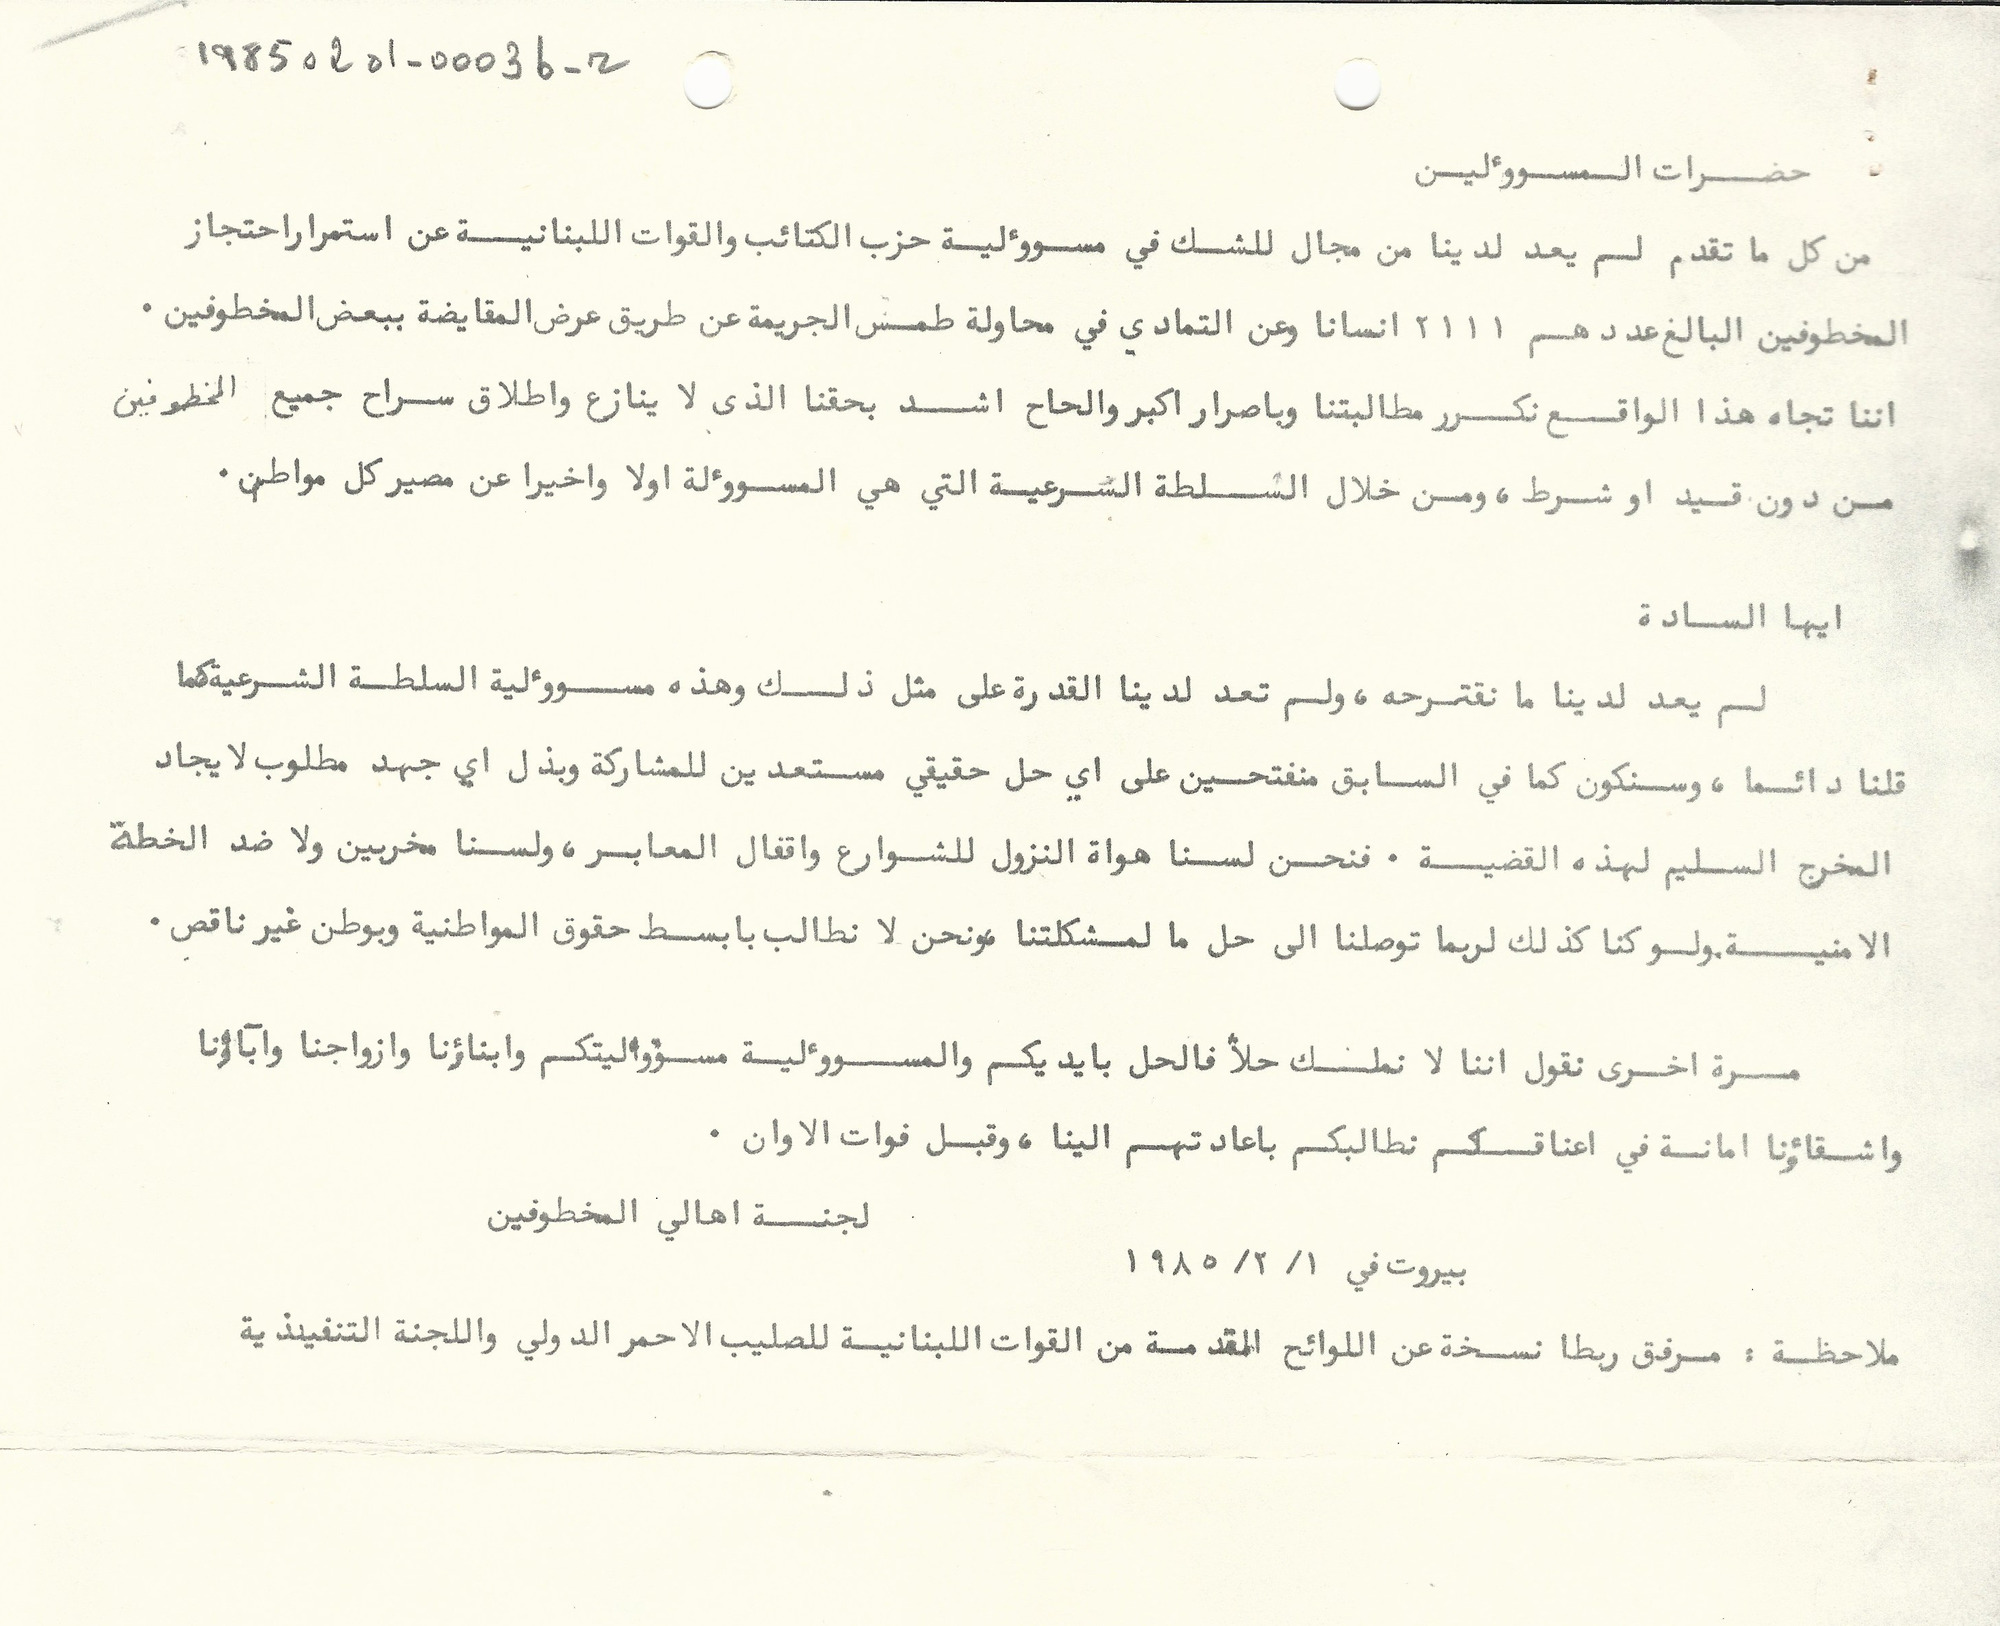 19850201-00036-2
حضرات المسوولين
من كل ما تقدم لم يعد لدينا من مجال للشك في مسوولية حزب الكتائب والقوات اللبنانية عن استمرار احتجاز
المخطوفين البالغ عددهم ٢١١١ انسانا وعن التمادي في محاولة طمس الجريمة عن طريق عرض المقايضة ببعض المخطوفين .
اننا تجاه هذا الواقع نكرر مطالبتنا وباصرار اكبر والحاح اشد بحقنا الذى لا ينازع واطلاق سراح جميع المخطوفين
من دون قيد او شرط ، ومن خلال السلطة الشرعية التي هي المسوولة اولا واخيرا عن مصير كل مواطن .
ايها السادة
لم يعد لدينا ما نقترحه ، ولم تعد لدينا القدرة على مثل ذلك وهذه مسوولية السلطة الشرعية كما
قلنا دائما ، وسنكون كما في السابق منفتحين على اي حل حقيقي مستعدين للمشاركة وبذل اي جهد مطلوب لايجاد
المخرج السليم لهذه القضية . فنحن لسنا هواة النزول للشوارع واقفال المعابر ، ولسنا مخربين ولا ضد الخطة
الامنية. ولو كنا كذلك لربما توصلنا الى حل ما لمشكلتنا ونحن لا نطالب بابسط حقوق المواطنية وبوطن غير ناقص .
مرة اخرى نقول اننا لا نملك حلاً فالحل بايديكم والمسوولية مسؤوليتكم وابناؤنا وازواجنا وآباؤنا
واشقاؤنا امانة في اعناقكم نطالبكم باعادتهم الينا ، وقبل فوات الاوان .
لجنة اهالي المخطوفين
بيروت في ١/ ٢/ ١٩٨٥
ملاحظة : مرفق ربطا نسخة عن اللوائح المقدمة من القوات اللبنانية للصليب الاحمر الدولي واللجنة التنفيذية